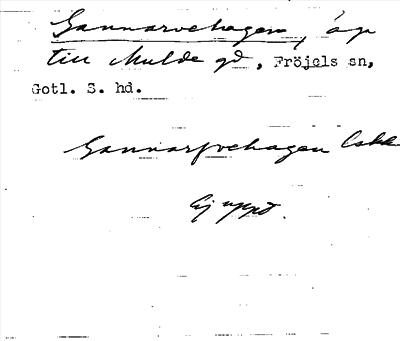 Gannarvehagen, åp
till Mulde gd, Fröjels sn,
Gotl. S. hd.
Gannarfvehagen Eskk
Ej uppt.